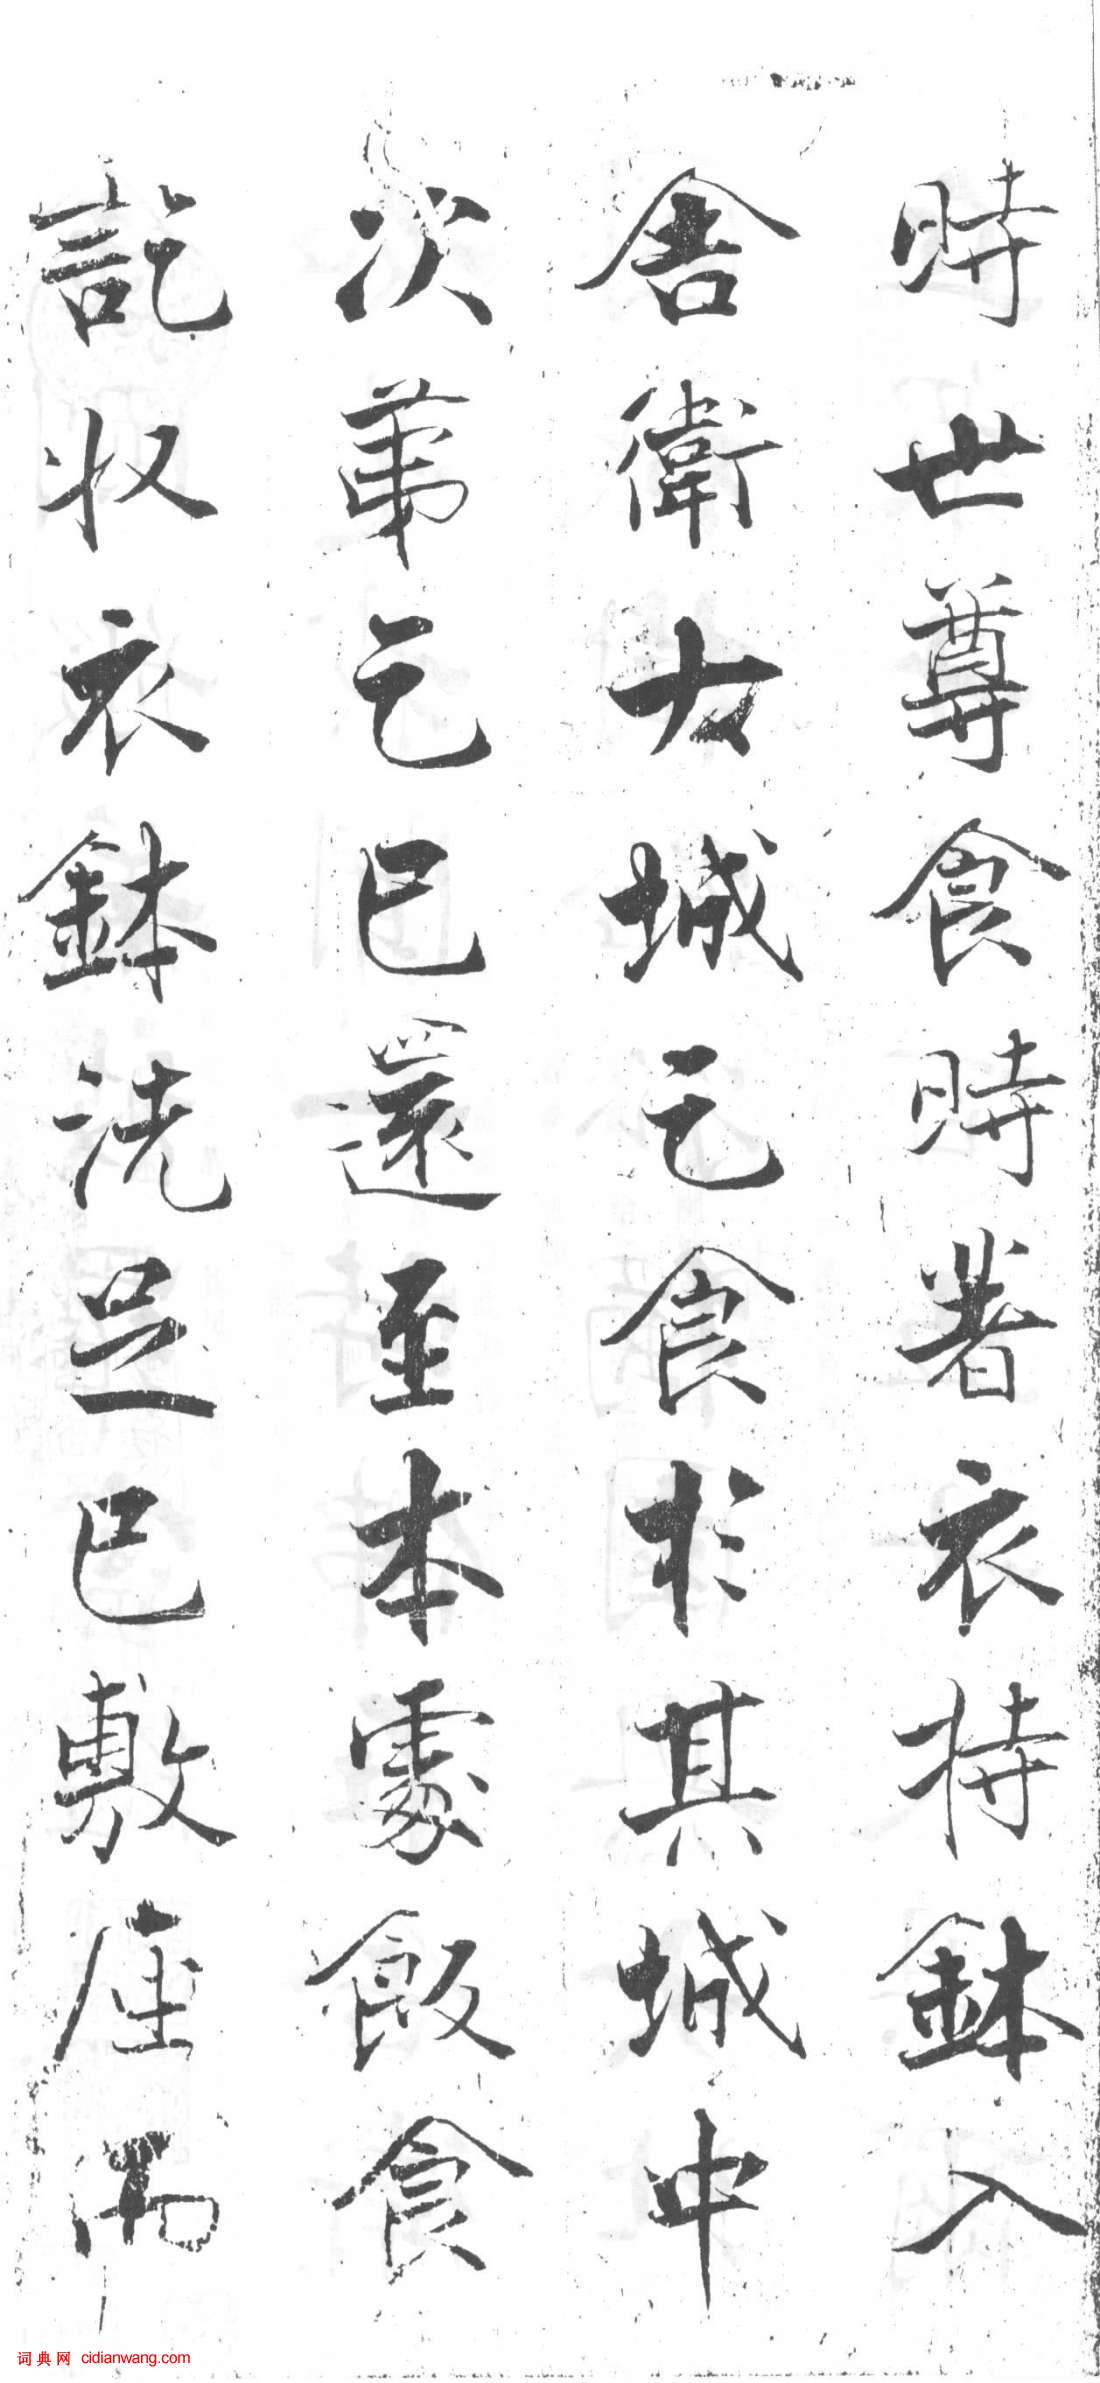 時世尊食時著衣持鉢入
舎衛大城乞食於其城中
次第乞已還至本處飯食
訖收衣鉢洗足已敷座而
词典网 cidianwang.com